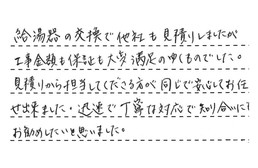 給湯器の交換で他社も見積りしましたが
工事金額も保証も大変満足のゆくものでした。
見積りから担当してくださる方が同じで安心してお任
せ出来ました。迅速で丁寧な対応で知り合いに
お勧めしたいと思いました。